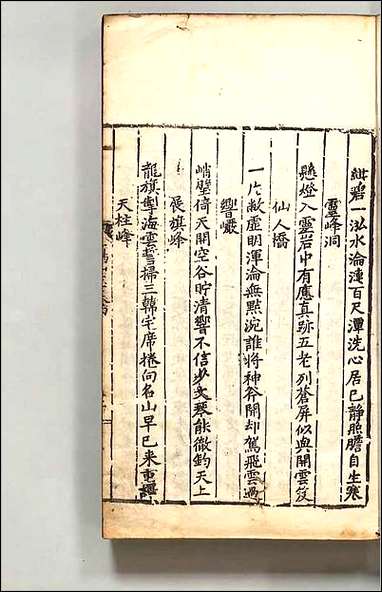 紺碧一泓水淪漣百尺潭洗心居已靜照膽自生寒
靈峰洞
懸燈入靈岩中有應真跡五老列蒼屏似與開雲笈
仙人橋
一片敞虛明渾淪無點涴誰將神斧開却駕飛雲過
響巖
峭壁倚天開空谷貯清響不信步文琴能徹鈞天上
展旗峰
龍旗掣海雲誓掃三韓宅席捲向名山早已来重譯
天柱峰